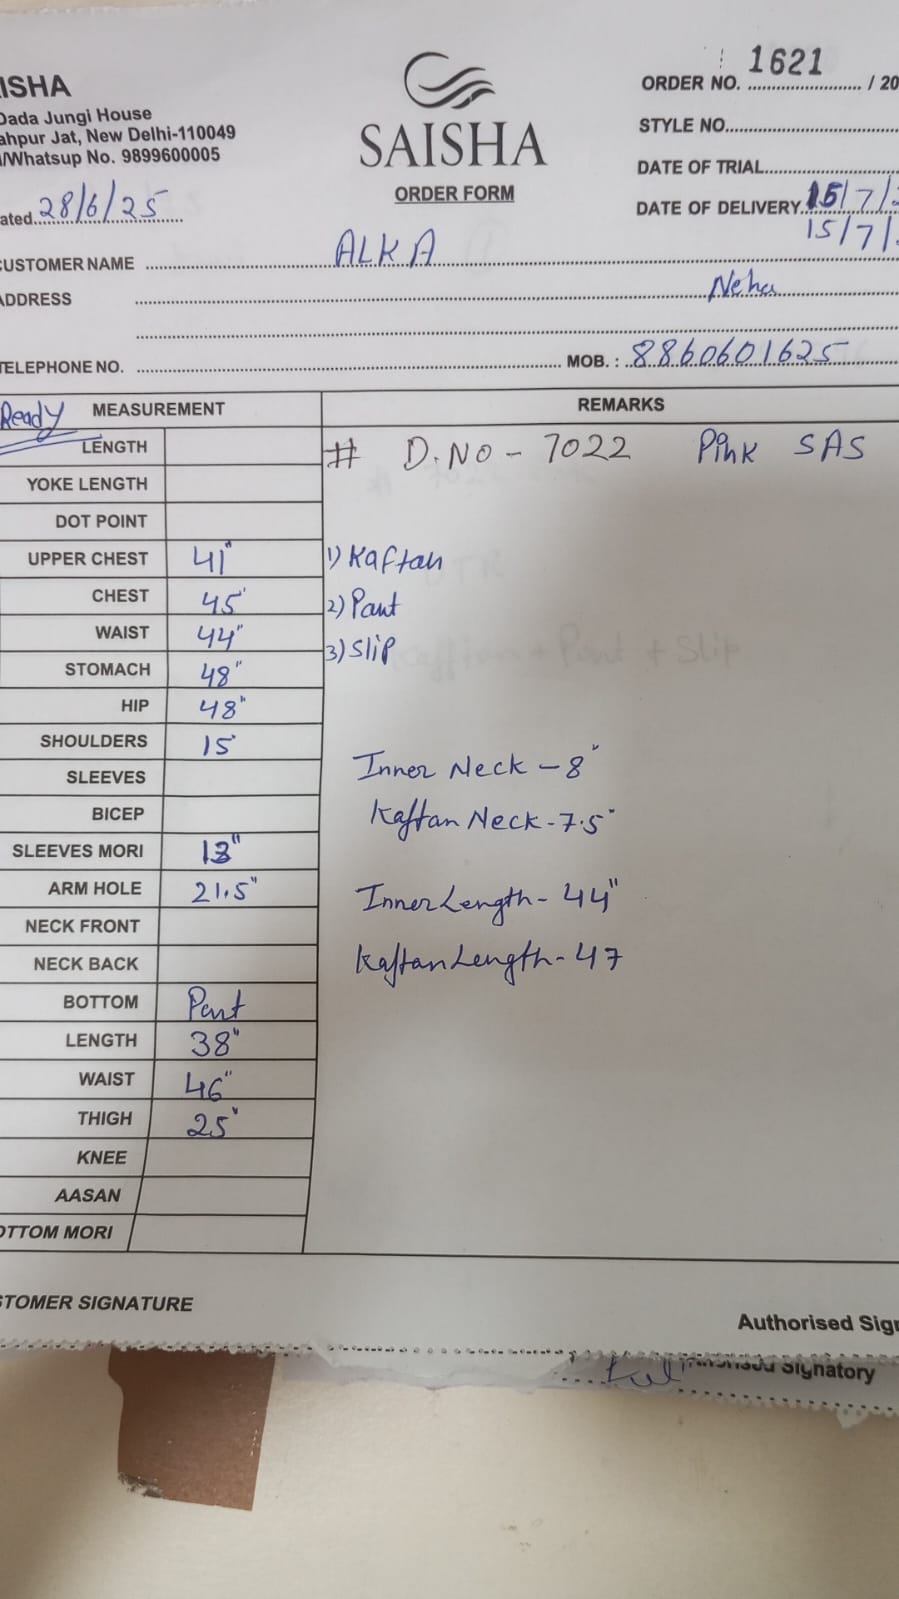 ISHA
Dada Jungi House
ahpur Jat, New Delhi-110049
/Whatsup No. 9899600005
ated 28/6/25
SAISHA
ORDER FORM
ORDER NO. 1621 / 20
STYLE NO.
DATE OF TRIAL
DATE OF DELIVERY 15/7/
15/7/
CUSTOMER NAME ALKA
ADDRESS Neha
TELEPHONE NO. MOB. : 8860601625
Ready MEASUREMENT REMARKS
LENGTH # D.NO - 7022 Pink SAS
YOKE LENGTH
DOT POINT
UPPER CHEST 41" 1) Kaftan
CHEST 45' 2) Pant
WAIST 44" 3) Slip
STOMACH 48"
HIP 48"
SHOULDERS 15' Inner Neck - 8"
SLEEVES
BICEP Kaftan Neck - 7.5"
SLEEVES MORI 13"
ARM HOLE 21.5" Inner Length - 44"
NECK FRONT
NECK BACK Kaftan Length - 47
BOTTOM Pant
LENGTH 38"
WAIST 46"
THIGH 25"
KNEE
AASAN
OTTOM MORI
STOMER SIGNATURE
Authorised Sign
Signatory